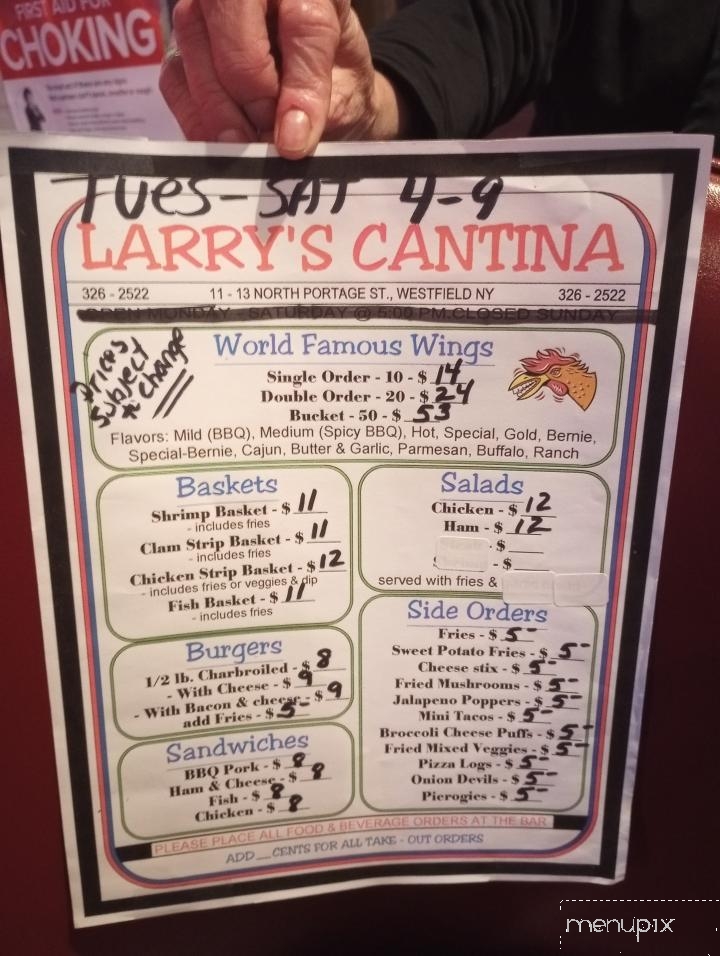 FIRST AID FOR
CHOKING
TUES-SAT 4-9
LARRY'S CANTINA
326 - 2522 11 - 13 NORTH PORTAGE ST., WESTFIELD NY 326 - 2522
OPEN MONDAY - SATURDAY @ 5:00 PM. CLOSED SUNDAY
Prices subject to change
World Famous Wings
Single Order - 10 - $ 14
Double Order - 20 - $ 24
Bucket - 50 - $ 53
Flavors: Mild (BBQ), Medium (Spicy BBQ), Hot, Special, Gold, Bernie,
Special-Bernie, Cajun, Butter & Garlic, Parmesan, Buffalo, Ranch
Baskets
Shrimp Basket - $ 11
- includes fries
Clam Strip Basket - $ 11
- includes fries
Chicken Strip Basket - $ 12
- includes fries or veggies & dip
Fish Basket - $ 11
- includes fries
Burgers
1/2 lb. Charbroiled - $ 8
- With Cheese - $ 9
- With Bacon & cheese - $ 9
add Fries - $ 5-
Sandwiches
BBQ Pork - $ 8
Ham & Cheese - $ 8
Fish - $ 8
Chicken - $ 8
Salads
Chicken - $ 12
Ham - $ 12
- $
- $
served with fries &
Side Orders
Fries - $ 5-
Sweet Potato Fries - $ 5-
Cheese stix - $ 5-
Fried Mushrooms - $ 5-
Jalapeno Poppers - $ 5-
Mini Tacos - $ 5-
Broccoli Cheese Puffs - $ 5-
Fried Mixed Veggies - $ 5-
Pizza Logs - $ 5-
Onion Devils - $ 5-
Pierogies - $ 5-
PLEASE PLACE ALL FOOD & BEVERAGE ORDERS AT THE BAR
ADD __ CENTS FOR ALL TAKE - OUT ORDERS
menupix